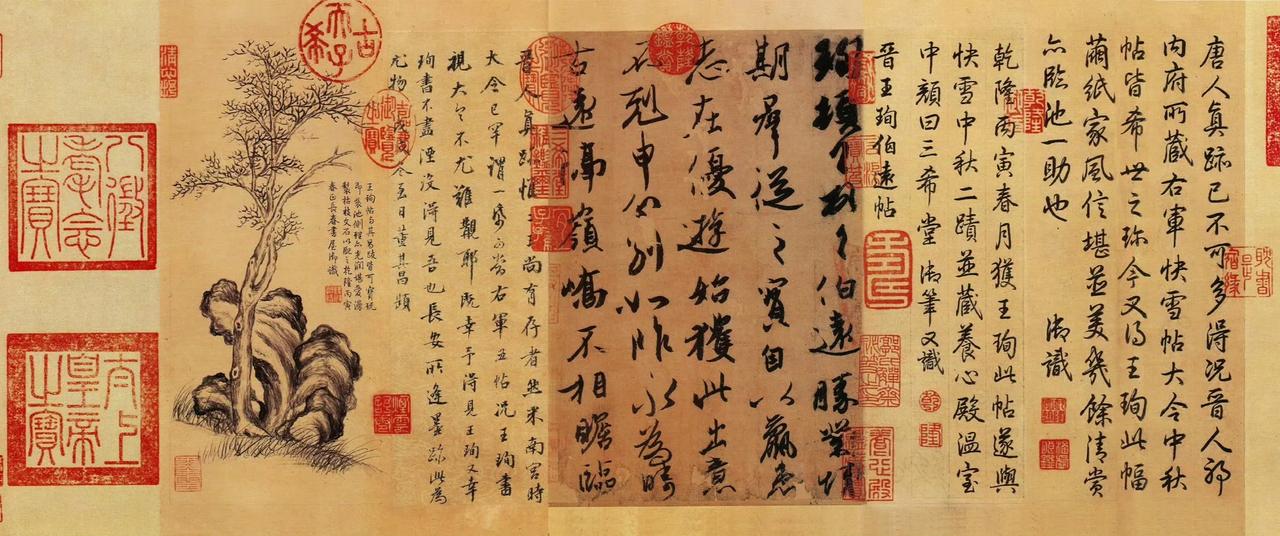 唐人真跡已不可多得況晉人耶
內府所藏右軍快雪帖大令中秋
帖皆希世之珍今又得王珣此幅
繭紙家風信堪並美幾餘清賞
亦臨池一助也 御識
乾隆丙寅春月獲王珣此帖遂與
快雪中秋二蹟並藏養心殿溫室
中顏曰三希堂 御筆又識
乾
隆
晉王珣伯遠帖
珣頓首頓首伯遠勝業情
期群從之寶自以羸患
志在優遊始獲此出意
不剋申分別如昨永為疇
古遠隔嶺嶠不相瞻臨
晉人真跡惟二王尚有存者然米南宮時
大令已罕謂一帋可當右軍五帖況王珣書
視大令不尤難覯耶既幸予得見王珣又幸
珣書不盡湮沒得見吾也長安所逢墨跡此為
尤物戊戌冬至日董其昌題
王珣帖與其昌跋皆可寶玩
即裝池側理亦光潤堪愛漫
製枯枝文石以配之乾隆丙寅
春正長春書屋御識
古希天子
八徵耄念之寶
太上皇帝之寶